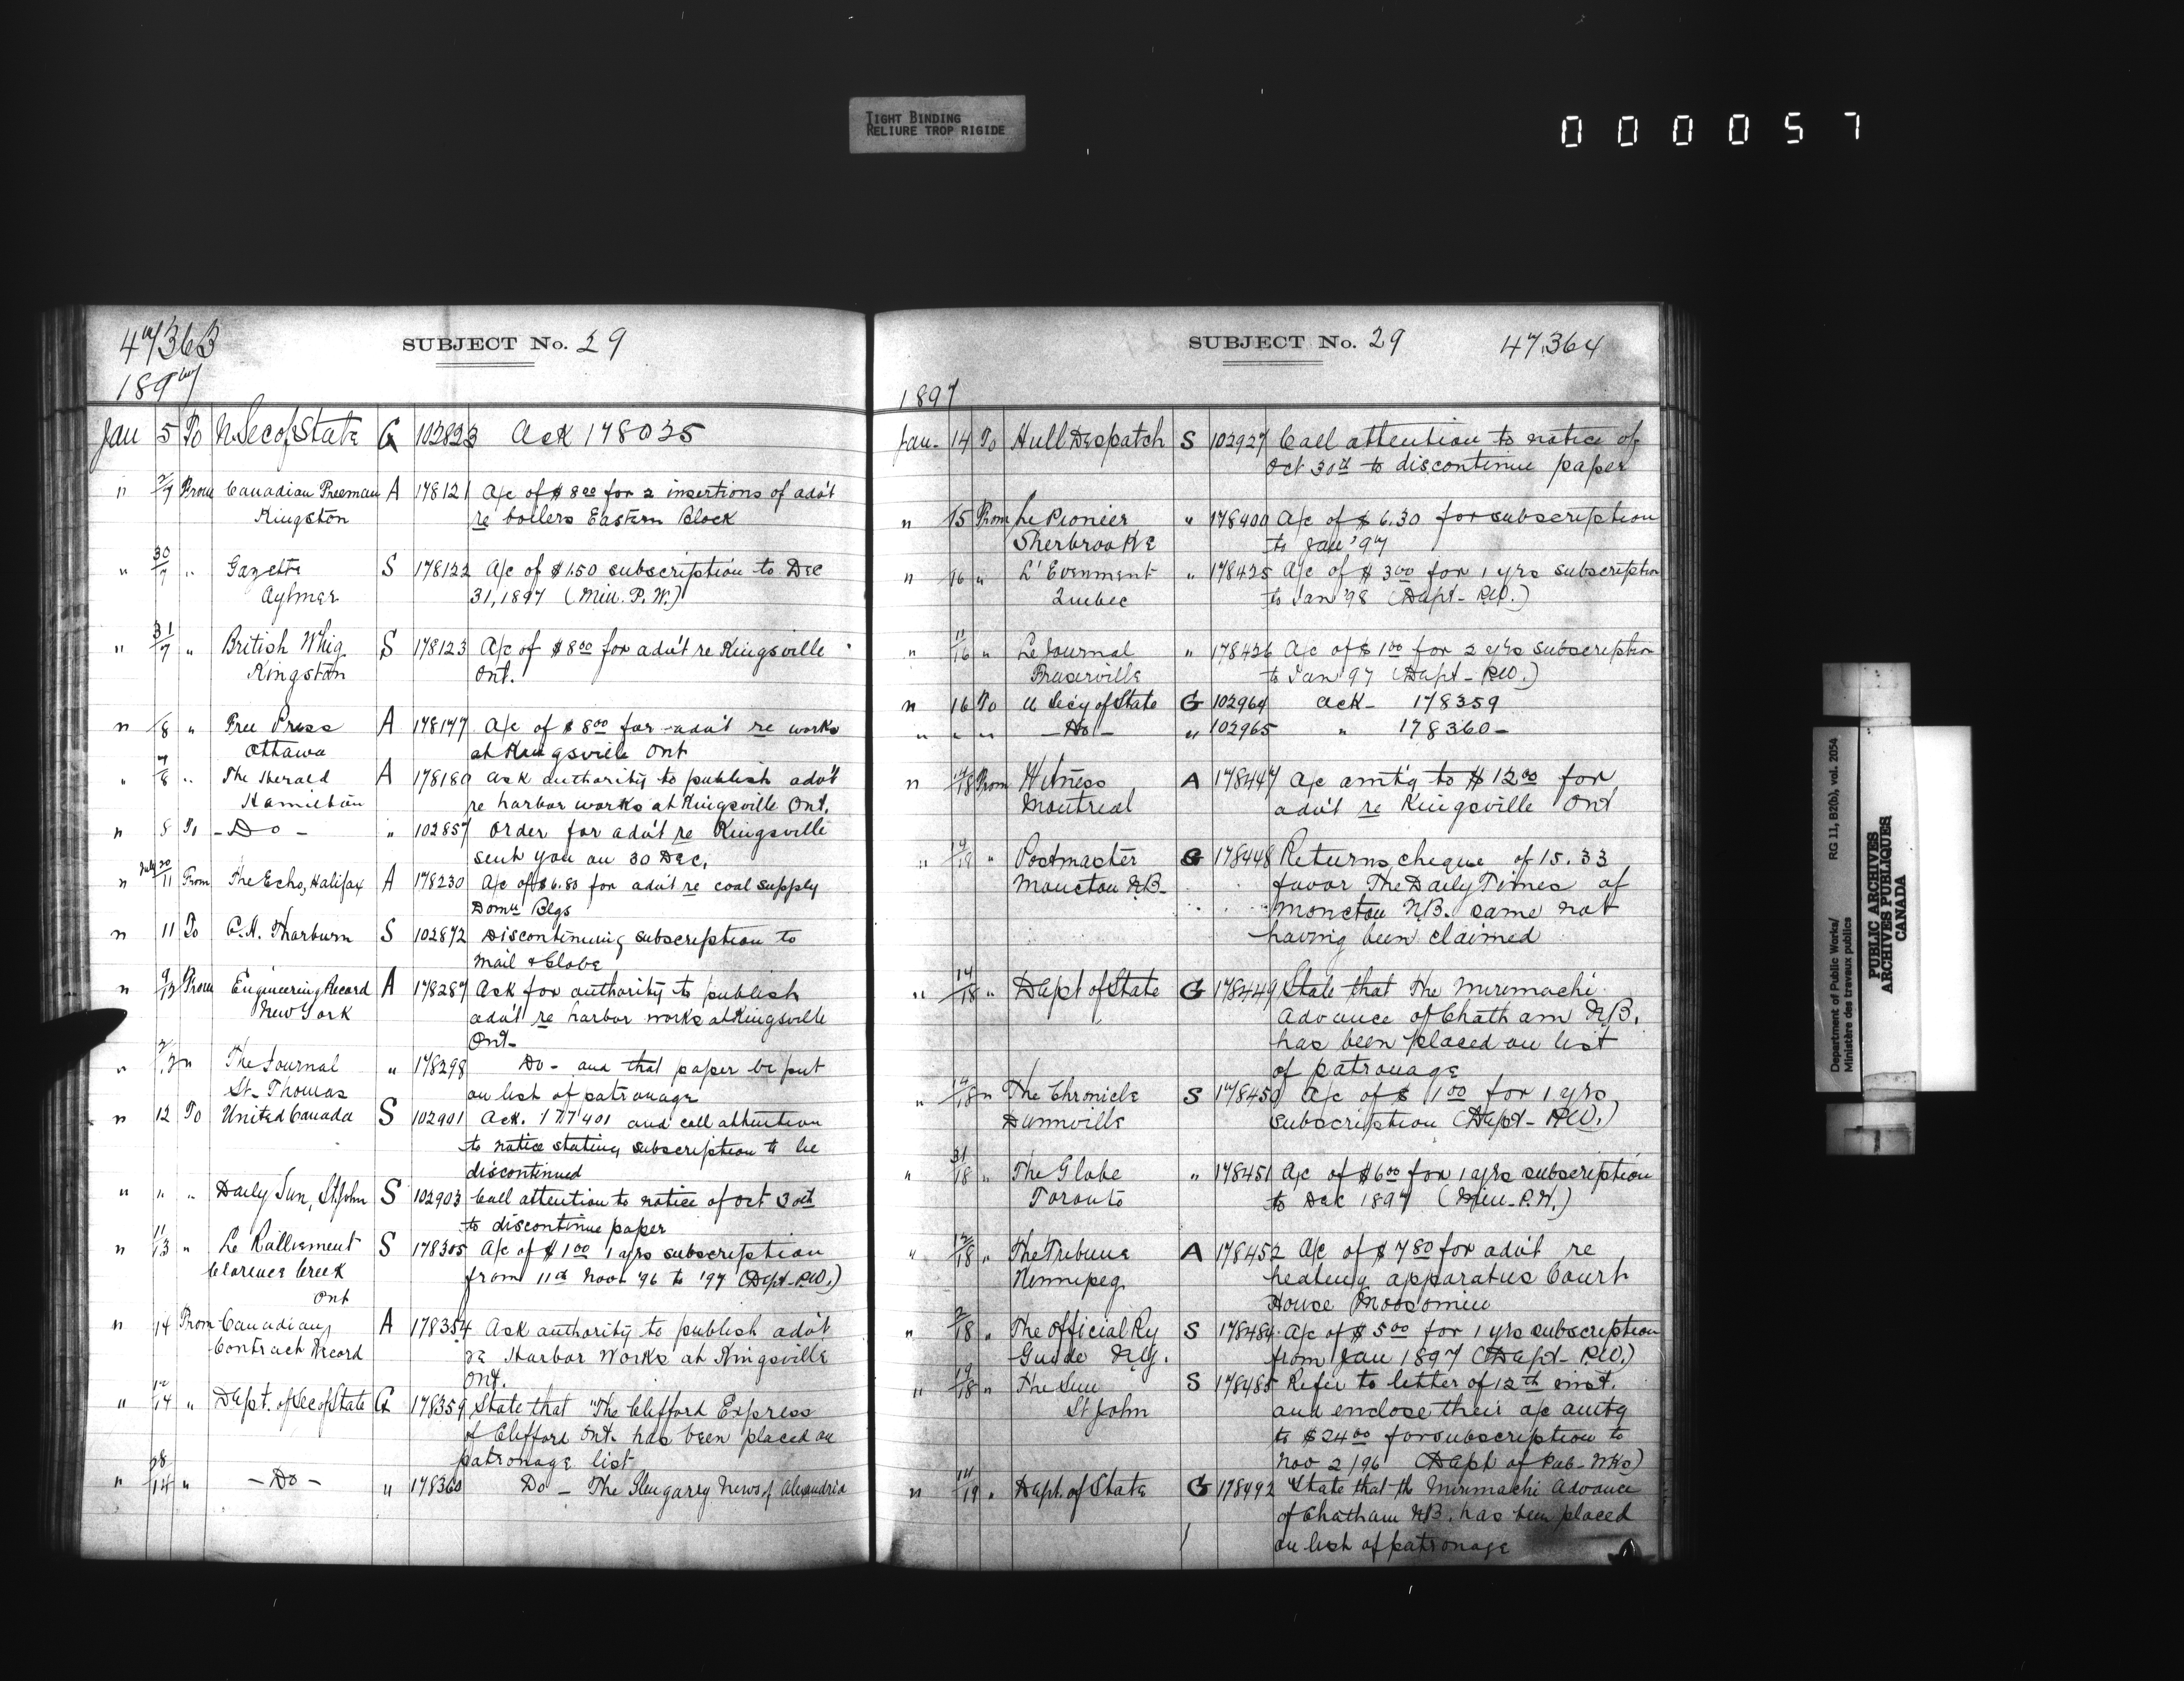 TIGHT BINDING
RELIURE TROP RIGIDE
0 0 0 0 5 7
47363
SUBJECT No. 29
1897
Jan 5 To U. Sec of State G 102823 Ack 178035
" 2/7 From Canadian Freeman A 178121 A/c of $8 00 for 2 insertions of adv't
Kingston re boilers Eastern Block
" 30/7 " Gazette S 178122 A/c of $1.50 subscription to Dec
Aylmer 31, 1897 (Min. P.W.)
" 31/7 " British Whig S 178123 A/c of $8 00 for adv't re Kingsville
Kingston Ont.
" /8 " Free Press A 178177 A/c of $8 00 for adv't re works
Ottawa at Kingsville Ont
" 7/8 " The Herald A 178180 Ask authority to publish adv't
Hamilton re harbor works at Kingsville Ont.
" 8 To - Do - " 102857 Order for adv't re Kingsville
sent you on 30 Dec.
" July 20/11 From The Echo, Halifax A 178230 A/c of $6.80 for adv't re coal supply
Domn Blgs
" 11 To C.H. Thorburn S 102872 Discontinuing subscription to
Mail & Globe
" 9/12 From Engineering Record A 178287 Ask for authority to publish
New York adv't re harbor works at Kingsville
Ont.
" /12 " The Journal " 178298 Do - and that paper be put
St. Thomas on list of patronage
" 12 To United Canada S 102901 Ack. 177401 and call attention
to notice stating subscription to be
discontinued
" " " Daily Sun, St John S 102903 Call attention to notice of Oct 30th
to discontinue paper
" 11/13 " Le Ralliement S 178305 A/c of $1 00 1 yrs subscription
Clarence Creek from 11th Nov. '96 to '97 (Dept. P.W.)
Ont
" 14 From Canadian A 178354 Ask authority to publish adv't
Contract Record re Harbor Works at Kingsville
Ont.
" 12/14 " Dept. of Sec of State G 178359 State that "The Clifford Express
of Clifford Ont. has been placed on
patronage list
" 28/14 " - Do - " 178360 Do - The Glengarry News of Alexandria
SUBJECT No. 29
47,364
1897
Jan. 14 To Hull Despatch S 102927 Call attention to notice of
Oct 30th to discontinue paper
" 15 From Le Pionier " 178400 A/c of $6.30 for subscription
Sherbrooke to Jan '97
" 16 " L'Evenment " 178425 A/c of $3 00 for 1 yrs subscription
Quebec to Jan '98 (Dept. P.W.)
" 11/16 " Le Journal " 178426 A/c of $1 00 for 2 yrs subscription
Fraserville to Jan '97 (Dept. P.W.)
" 16 To U Sec'y of State G 102964 Ack - 178359
" " " - Do - " 102965 " 178360 -
" /18 From Witness A 178447 A/c amt'g to $12 00 for
Montreal adv't re Kingsville Ont
" /18 " Postmaster G 178448 Returns cheque of 15.33
Moncton N.B. favor The Daily Times of
Moncton N.B. same not
having been claimed
" 14/18 " Dept of State G 178449 State that The Mirimachi
Advance of Chatham N.B.
has been placed on list
of patronage
" /18 " The Chronicle S 178450 A/c of $1 00 for 1 yrs
Dunnville subscription (Dept. P.W.)
" 31/18 " The Globe " 178451 A/c of $6 00 for 1 yrs subscription
Toronto to Dec 1897 (Min. P.W.)
" 12/18 " The Tribune A 178452 A/c of $7 80 for adv't re
Winnipeg heating apparatus Court
House Moosomin
" 2/18 " The Official Ry S 178484 A/c of $5 00 for 1 yrs subscription
Guide N.Y. from Jan 1897 (Dept. P.W.)
" 19/18 " The Sun S 178485 Refer to letter of 12th inst.
St John and enclose their a/c amtg
to $24 00 for subscription to
Nov 2/96 (Dept of Pub. Wks)
" 14/19 " Dept. of State G 178492 State that the Mirimachi Advance
of Chatham N.B. has been placed
on list of patronage
Department of Public Works/ RG 11, B2(b), vol. 2054
Ministère des travaux publics
PUBLIC ARCHIVES
ARCHIVES PUBLIQUES
CANADA